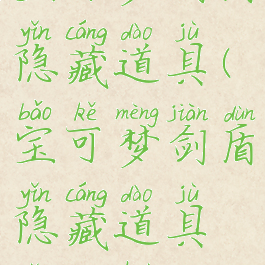 yǐn cáng dào jù
隐藏道具(
bǎo kě mèng jiàn dùn
宝可梦剑盾
yǐn cáng dào jù
隐藏道具